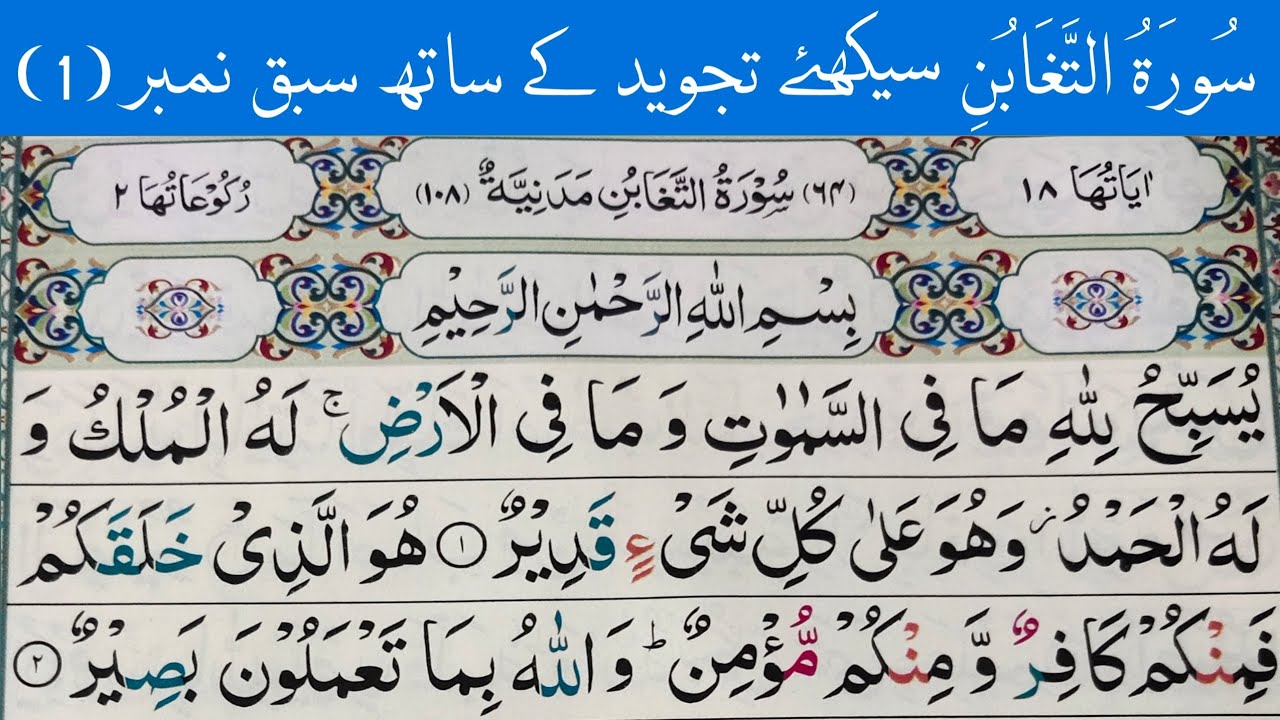 سُورَةُ التَّغَابُنِ سیکھئے تجوید کے ساتھ سبق نمبر (1)
اٰیَاتُهَا ۱۸
(۶۴) سُوْرَةُ التَّغَابُنِ مَدَنِیَّةٌ (۱۰۸)
رُكُوْعَاتُهَا ۲
بِسْمِ اللّٰهِ الرَّحْمٰنِ الرَّحِیْمِ
یُسَبِّحُ لِلّٰهِ مَا فِی السَّمٰوٰتِ وَ مَا فِی الْاَرْضِ ۚ لَهُ الْمُلْكُ وَ
لَهُ الْحَمْدُ ؗ وَهُوَ عَلٰی كُلِّ شَیْءٍ قَدِیْرٌ ۱ هُوَ الَّذِیْ خَلَقَكُمْ
فَمِنْكُمْ كَافِرٌ وَّ مِنْكُمْ مُّؤْمِنٌ ؕ وَ اللّٰهُ بِمَا تَعْمَلُوْنَ بَصِیْرٌ ۲